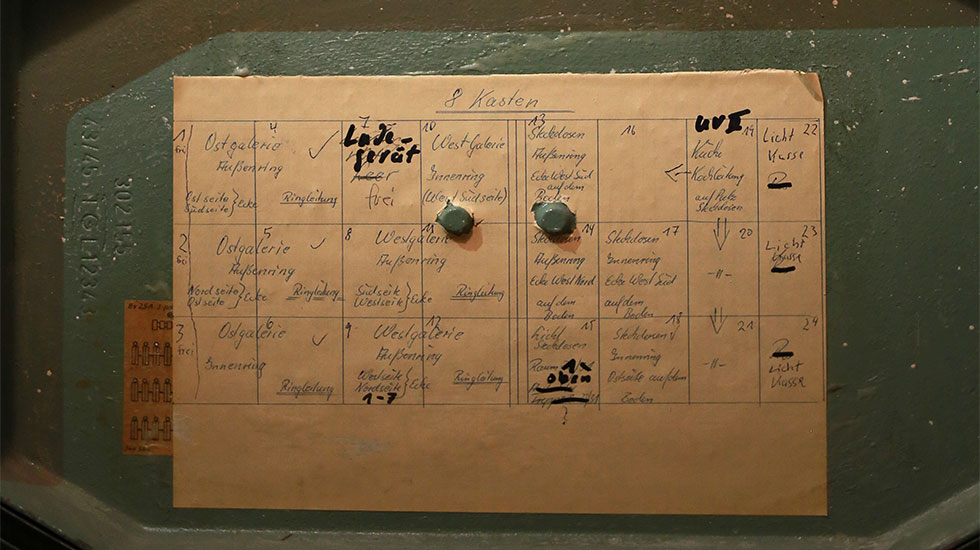 8 Kasten
1 frei
4
Ostgalerie
Außenring
Ostseite
Südseite } Ecke
Ringleitung
7
Lade-
gerät
frei
10
WestGalerie
Innenring
(West Südseite)
13
Steckdosen
Außenring
Ecke West Süd
auf dem
Boden
16
UV II
19
Küche
Kochleitung
auf Putz
Steckdosen
22
Licht
Kasse
2
5
Ostgalerie
Außenring
Nordseite
Ostseite } Ecke
Ringleitung
8
11
Westgalerie
Außenring
Südseite
Westseite } Ecke
Ringleitung
14
Steckdosen
Außenring
Ecke West Nord
auf dem
Boden
17
Steckdosen
Innenring
Ecke West Süd
auf dem
Boden
20
-"-
23
Licht
Kasse
3
frei
6
Ostgalerie
Innenring
Ringleitung
9
12
Westgalerie
Außenring
Westseite
Nordseite } Ecke
1-7
Ringleitung
15
Licht
Steckdosen
Raum 1x
oben
?
18
Steckdosen
Innenring
Ostseite auf dem
Boden
21
-"-
24
Licht
Kasse